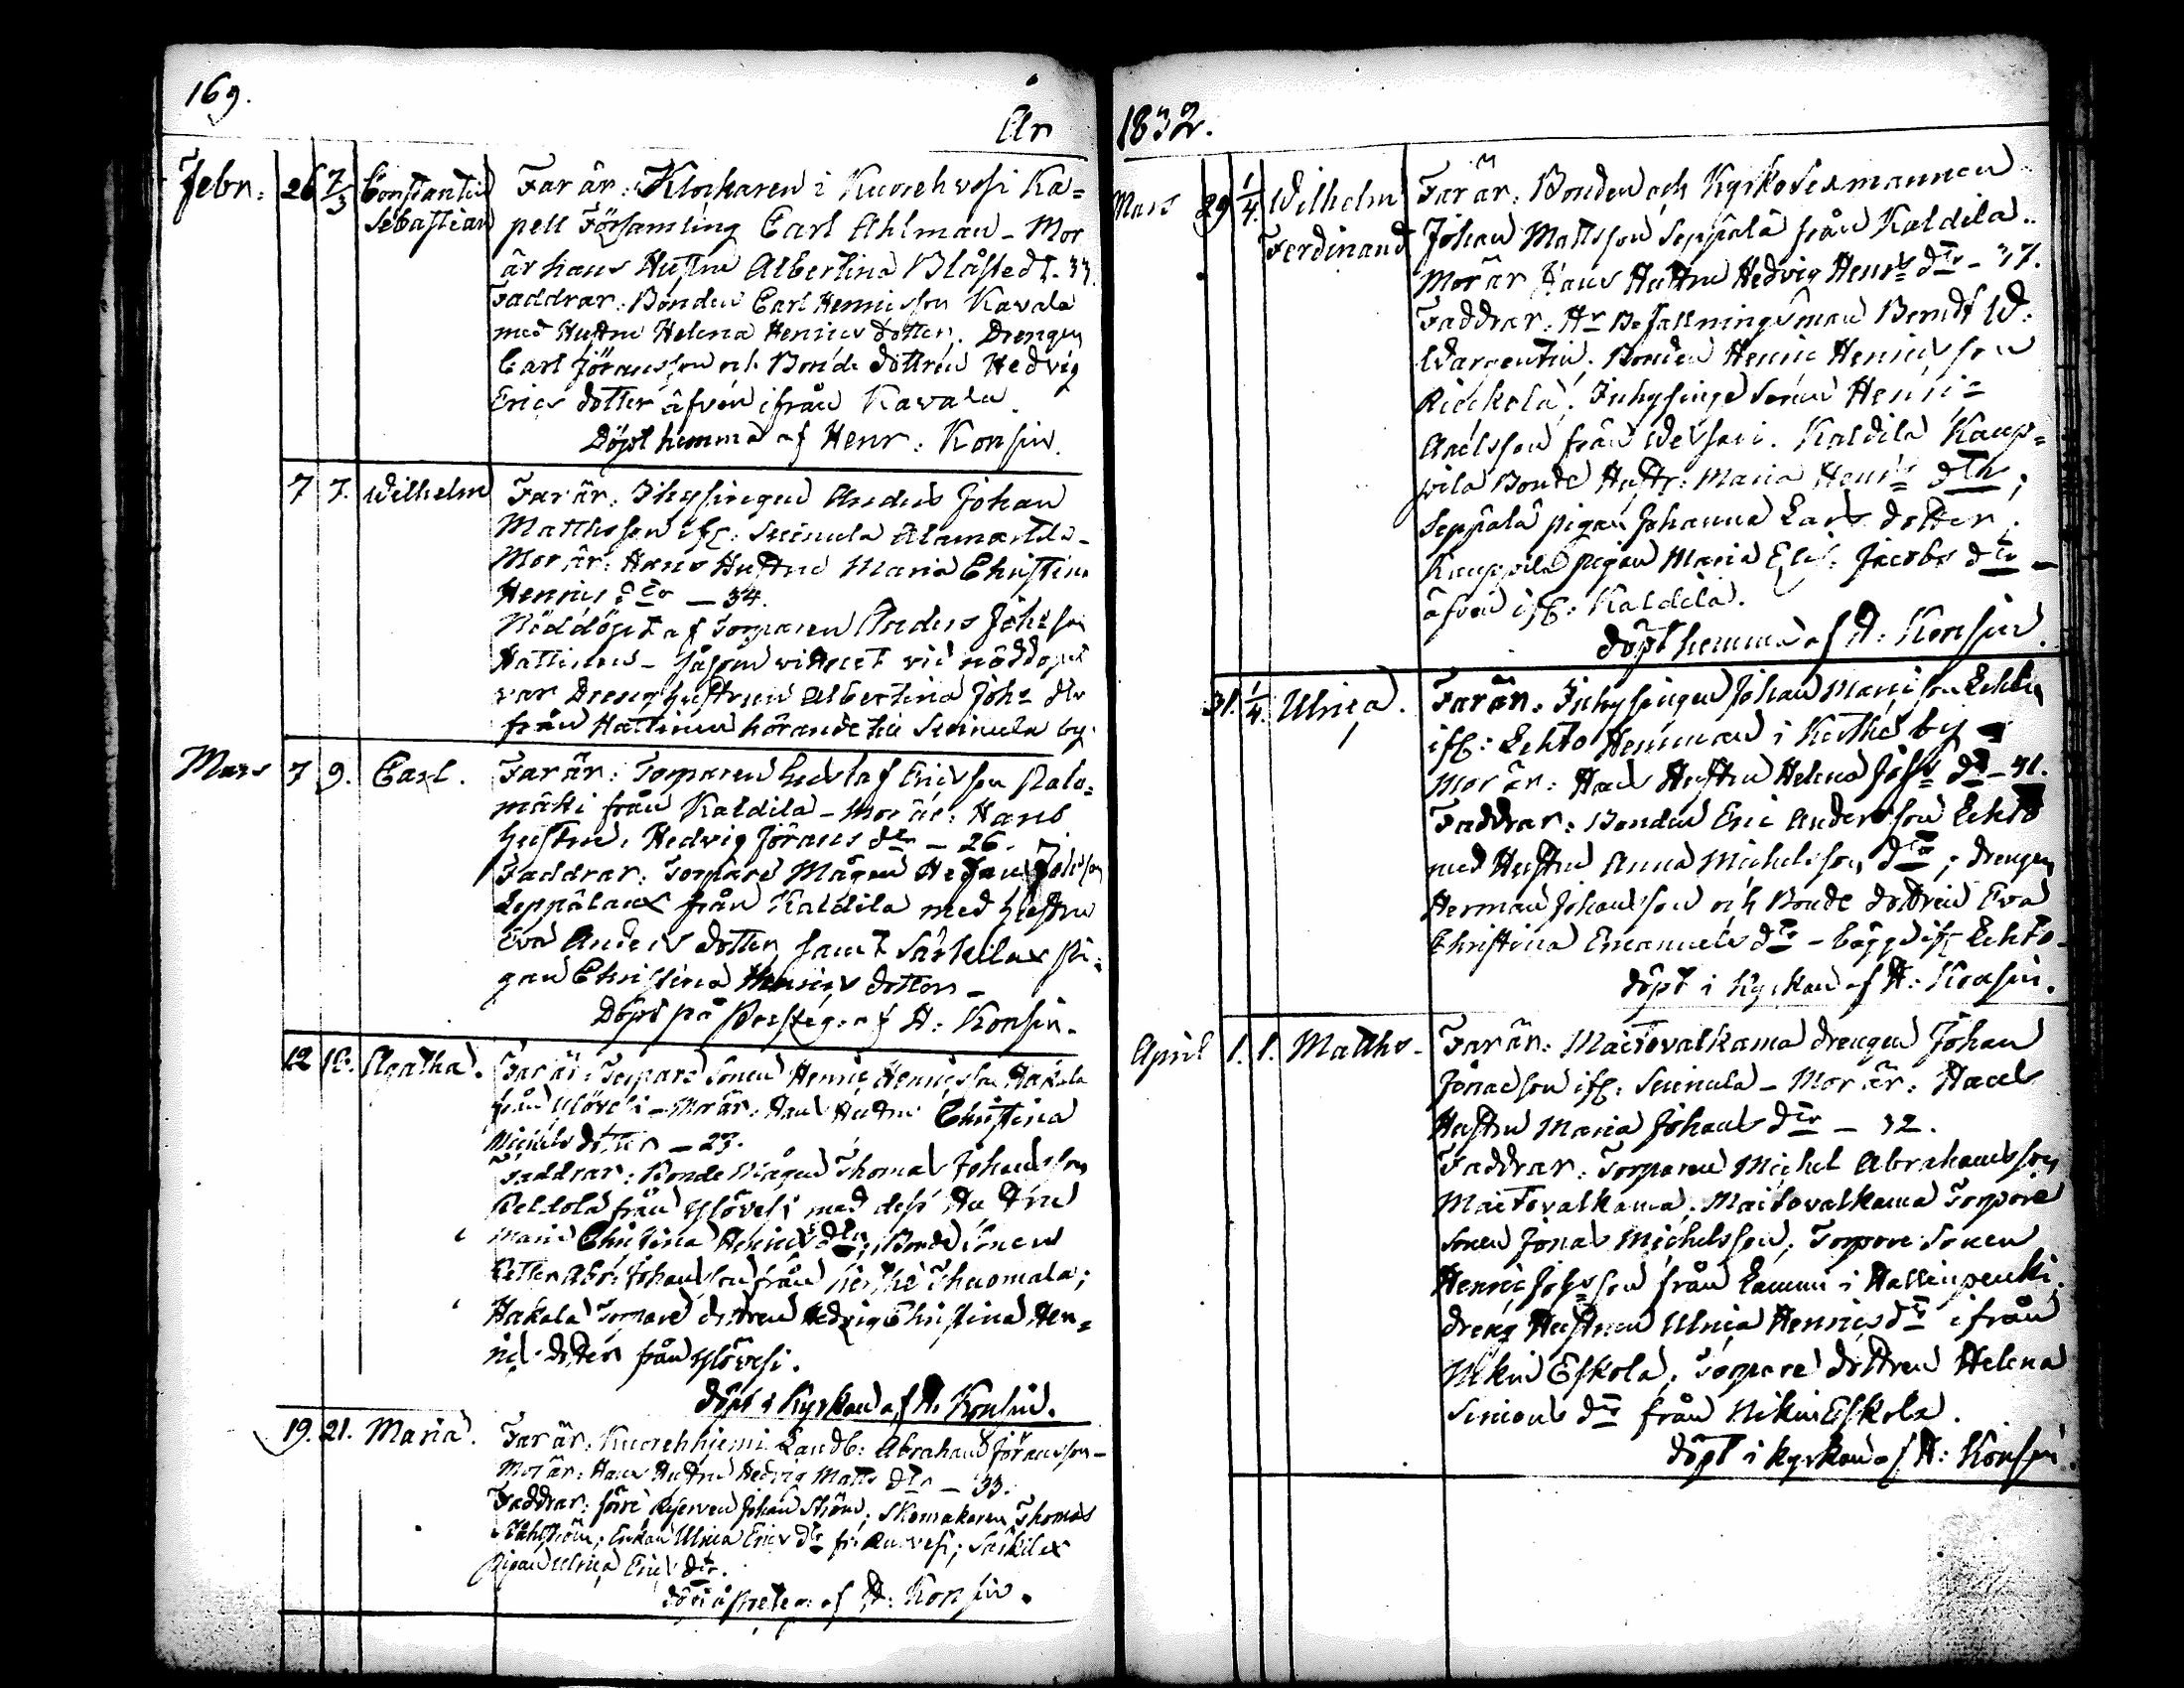 169.
År
Febr: 26 7/3 Constantin Sebastian
Far är: Klockaren i Kuorehvesi Ka=
pell Församling Carl Ahlman - Mor
är hans Hustru Albertina Blåstedt - 33.
Faddrar: Bonden Carl Henricsson Kavala
med Hustru Helena Henrics dotter. Drengen
Carl Jöransson och Bonde dottren Hedvig
Erics dotter äfven ifrån Kavala.
Döpt hemma af Henr: Konsin.
7 7. Wilhelm
Far är: Ihysingen Anders Johan
Matthsson ifr: Suinula Alamattila -
Mor är: Hans Hustru Maria Christina
Henrics dtr - 34.
Nöddöpt af Torparen Anders Johsson
Hattinen - såsom vittnet vid nöddopet
var Dreng hustrun Albertina Johs dtr
från Hattinen hörande till Suinula by.
Mars 7 9. Carl.
Far är: Torparen Gustaf Ericsson Salo=
mäki från Kaldila - Mor är: Hans
Hustru: Hedvig Jörans dtr - 26.
Faddrar: Torpare Mågen Johsson
Seppälaux från Kaldila med Hustru
Eva Anders dotter, samt Särkilax Pi=
gan Christina Henrics dotter -
Döpt på Presteg: af H: Konsin.
12 18. Agatha.
Far är: Torpare Sonen Henric Henricsson Hakala
från Ylövesi - Mor är: Hans Hustru Christina
Michels dotter - 23.
Faddrar: Bonde Mågen Thomas Johansson
Peldola från Ylövesi med dess Hustru
Maria Christina Henrics dtr; Bonde Sonen
Petter Abr: Johansson från Kerthe Thuomala;
Hakala Torpare dottren Hedvig Christina Hen=
rics dotter från Ylövesi.
döpt i Kyrkan af H: Konsin.
19. 21. Maria.
Far är: Kuorehhjemi Landb: Abraham Jöransson -
Mor är: Hans Hustru Hedvig Matts dtr - 33.
Faddrar: förre Ryerven Johan Ström; Skomakaren Thomas
Enkan Ulrica Erics dtr fr: Särkilax
Pigan Ulrica Erics dtr.
af H: Konsin.
1832.
Mars 29 1/4. Wilhelm Ferdinand
Far är: Bonden och Kyrkosexmannen
Johan Mattsson Seppälä från Kaldila.
Mor är Hans Hustru Hedvig Henrs dtr - 37.
Faddrar: Hr Befallningsman Berndt W:
Wargentin; Bonden Henric Henricsson
Inhysinge Sonen Henric
Axelsson från Wesjari. Kaldila Kaup=
pila Bonde Hustr: Maria Henrs dtr;
Seppälä pigan Johanna Lars dotter;
Kauppila pigan Maria Elis: Jacobs dtr -
äfven ifr: Kaldila.
döpt hemma af H: Konsin.
31. 1/4. Ulrica.
Far är: Inhysingen Johan Lehto
ifr: Lehto Hemman i Kerthe by
Mor är: Hans Hustru Helena Johs dtr - 41.
Faddrar: Bonden Eric Andersson Lehto
med Hustru Anna Michelsson dtr; drengen
Herman Johansson och Bonde dottren Eva
Christina Emanuels dtr - bägge ifr Lehto -
döpt i Kyrkan af H: Konsin.
April 1. 1. Matths -
Far är: Maitovalkama drengen Johan
Jönasson ifr: Suinula - Mor är: Hans
Hustru Maria Johans dtr - 32.
Faddrar: Torparen Michel Abrahamsson
Maitovalkama; Maitovalkama Torpare
Sonen Jonas Michelsson; Torpare Sonen
Henric Johsson från Lammi i Hallinpenki;
dreng Hustrun Ulrica Henrics dtr ifrån
Nikin Eskola; Torpare dottren Helena
Simons dtr från Nikin Eskola.
döpt i kyrkan af H: Konsin.